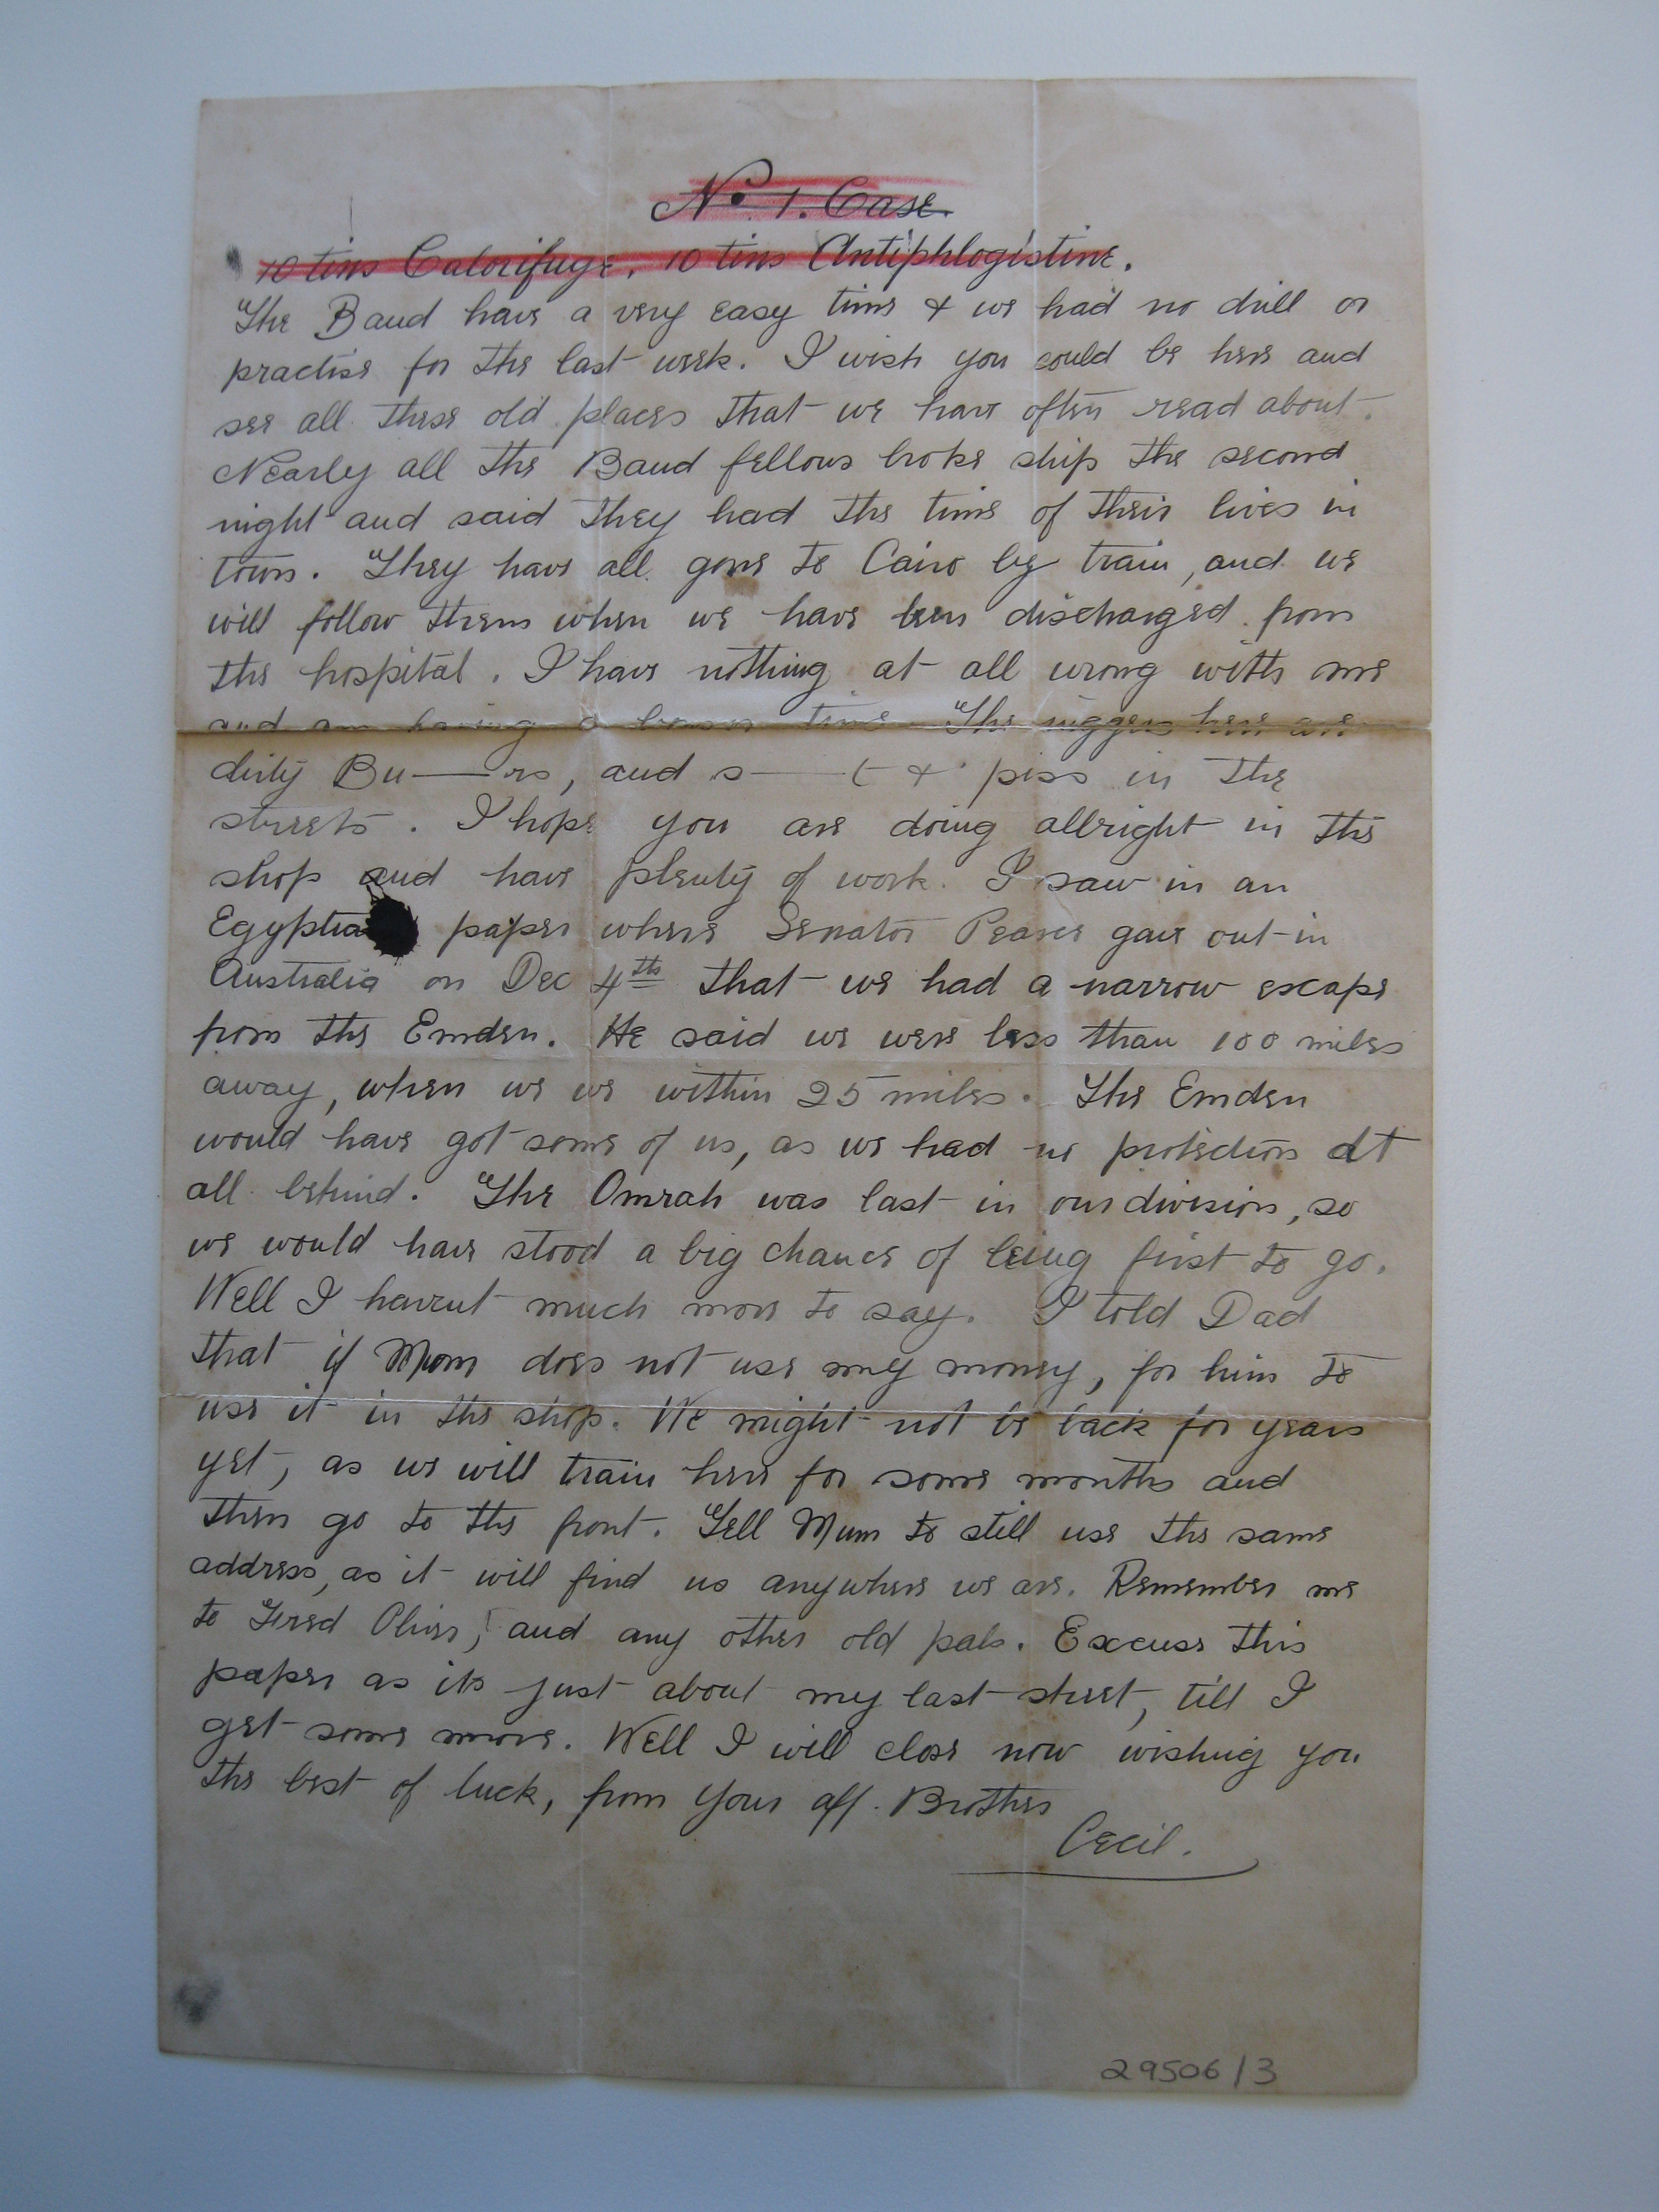 No 1. Case.
10 tins Calorifuge. 10 tins Antiphlogistine.
The Band have a very easy time & we had no drill or
practise for the last week. I wish you could be here and
see all these old places that we have often read about.
Nearly all the Band fellows broke ship the second
night and said they had the time of their lives in
town. They have all gone to Cairo by train, and we
will follow them when we have been discharged from
the hospital. I have nothing at all wrong with me
and am having a bonser time. The niggers here are
dirty Bu——rs, and s——t & piss in the
streets. I hope you are doing allright in the
shop and have plenty of work. I saw in an
Egyptia paper where Senator Pearce gave out in
Australia on Dec 4th that we had a narrow escape
from the Emden. He said we were less than 100 miles
away, when we we within 25 miles. The Emden
would have got some of us, as we had no protection at
all behind. The Omrah was last in our division, so
we would have stood a big chance of being first to go.
Well I havent much more to say. I told Dad
that if Mom does not use my money, for him to
use it in the shop. We might not be back for years
yet, as we will train here for some months and
then go to the front. Tell Mum to still use the same
address, as it will find us anywhere we are. Remember me
to Fred Oliver, and any other old pals. Excuse this
paper as its just about my last sheet, till I
get some more. Well I will close now wishing you
the best of luck, from your aff. Brother
Cecil.
29506/3